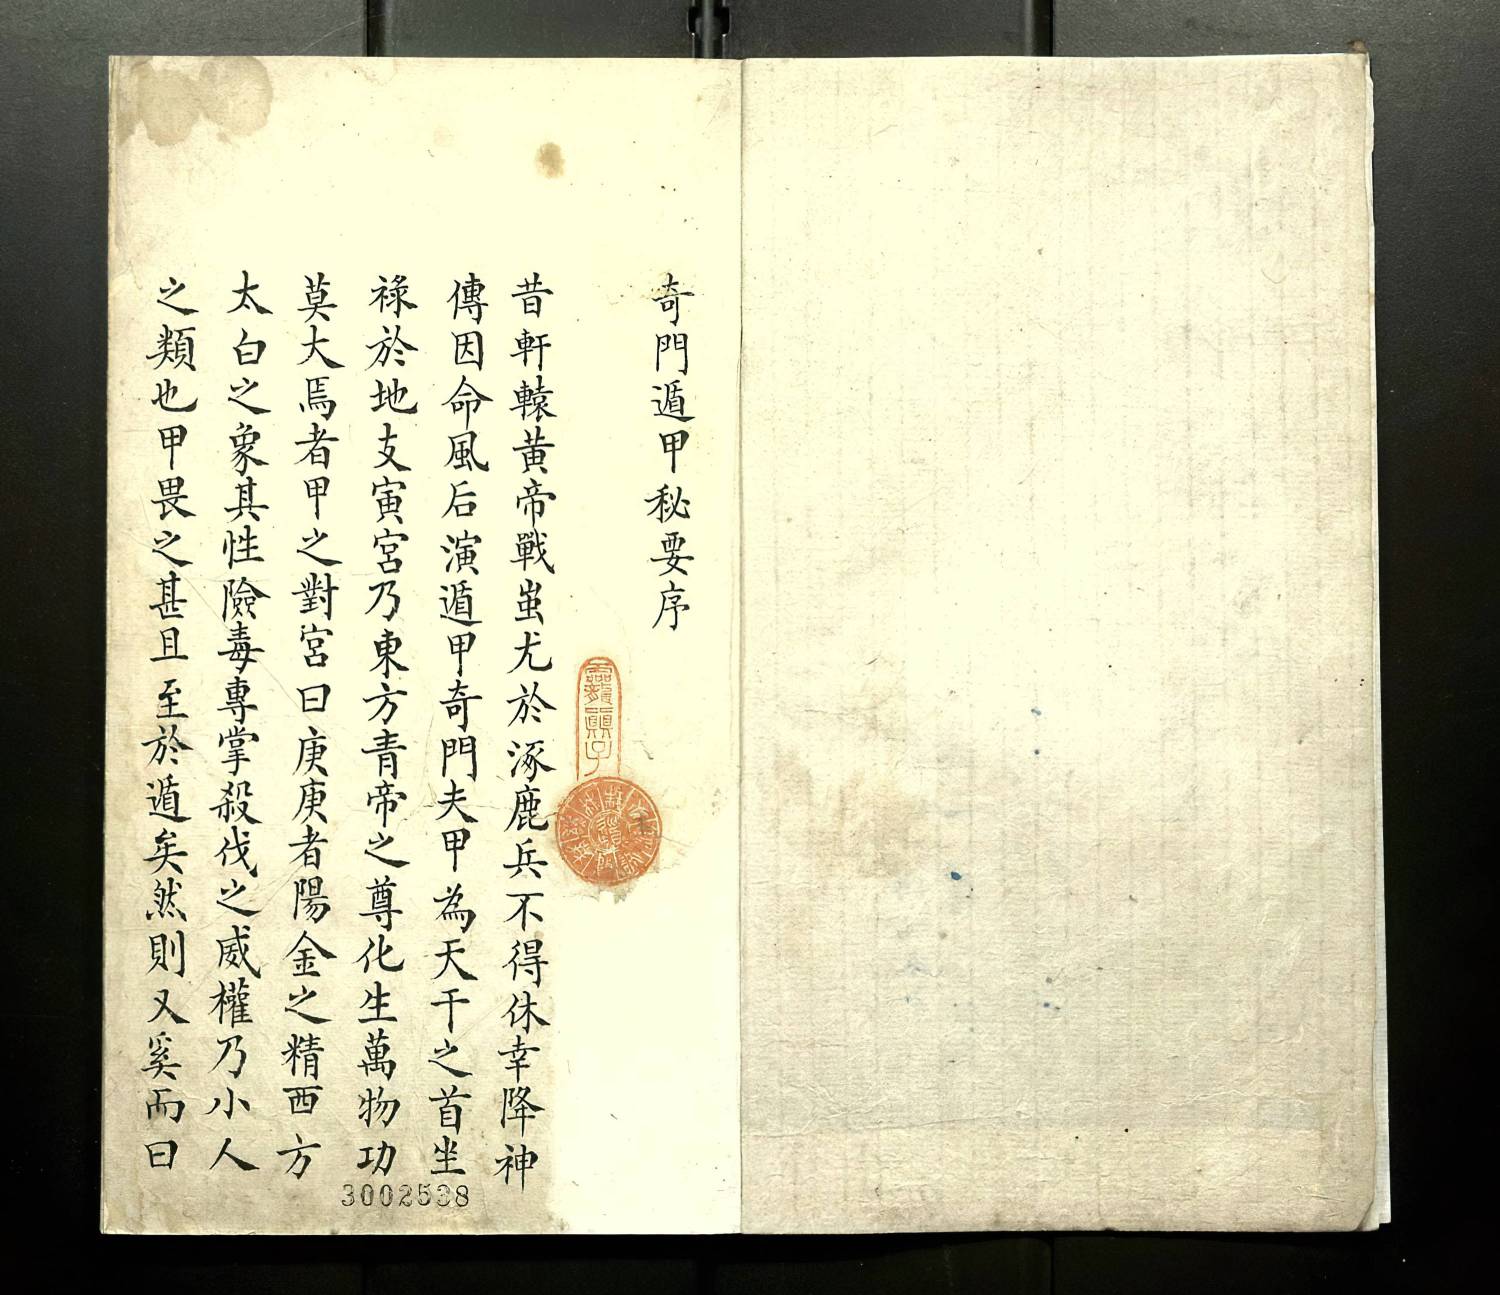 奇門遁甲秘要序
昔軒轅黃帝戰蚩尤於涿鹿兵不得休幸降神
傳因命風后演遁甲奇門夫甲為天干之首坐
祿於地支寅宮乃東方青帝之尊化生萬物功
莫大焉者甲之對宮曰庚庚者陽金之精西方
太白之象其性險毒專掌殺伐之威權乃小人
之類也甲畏之甚且至於遁矣然則又奚而曰
3002538